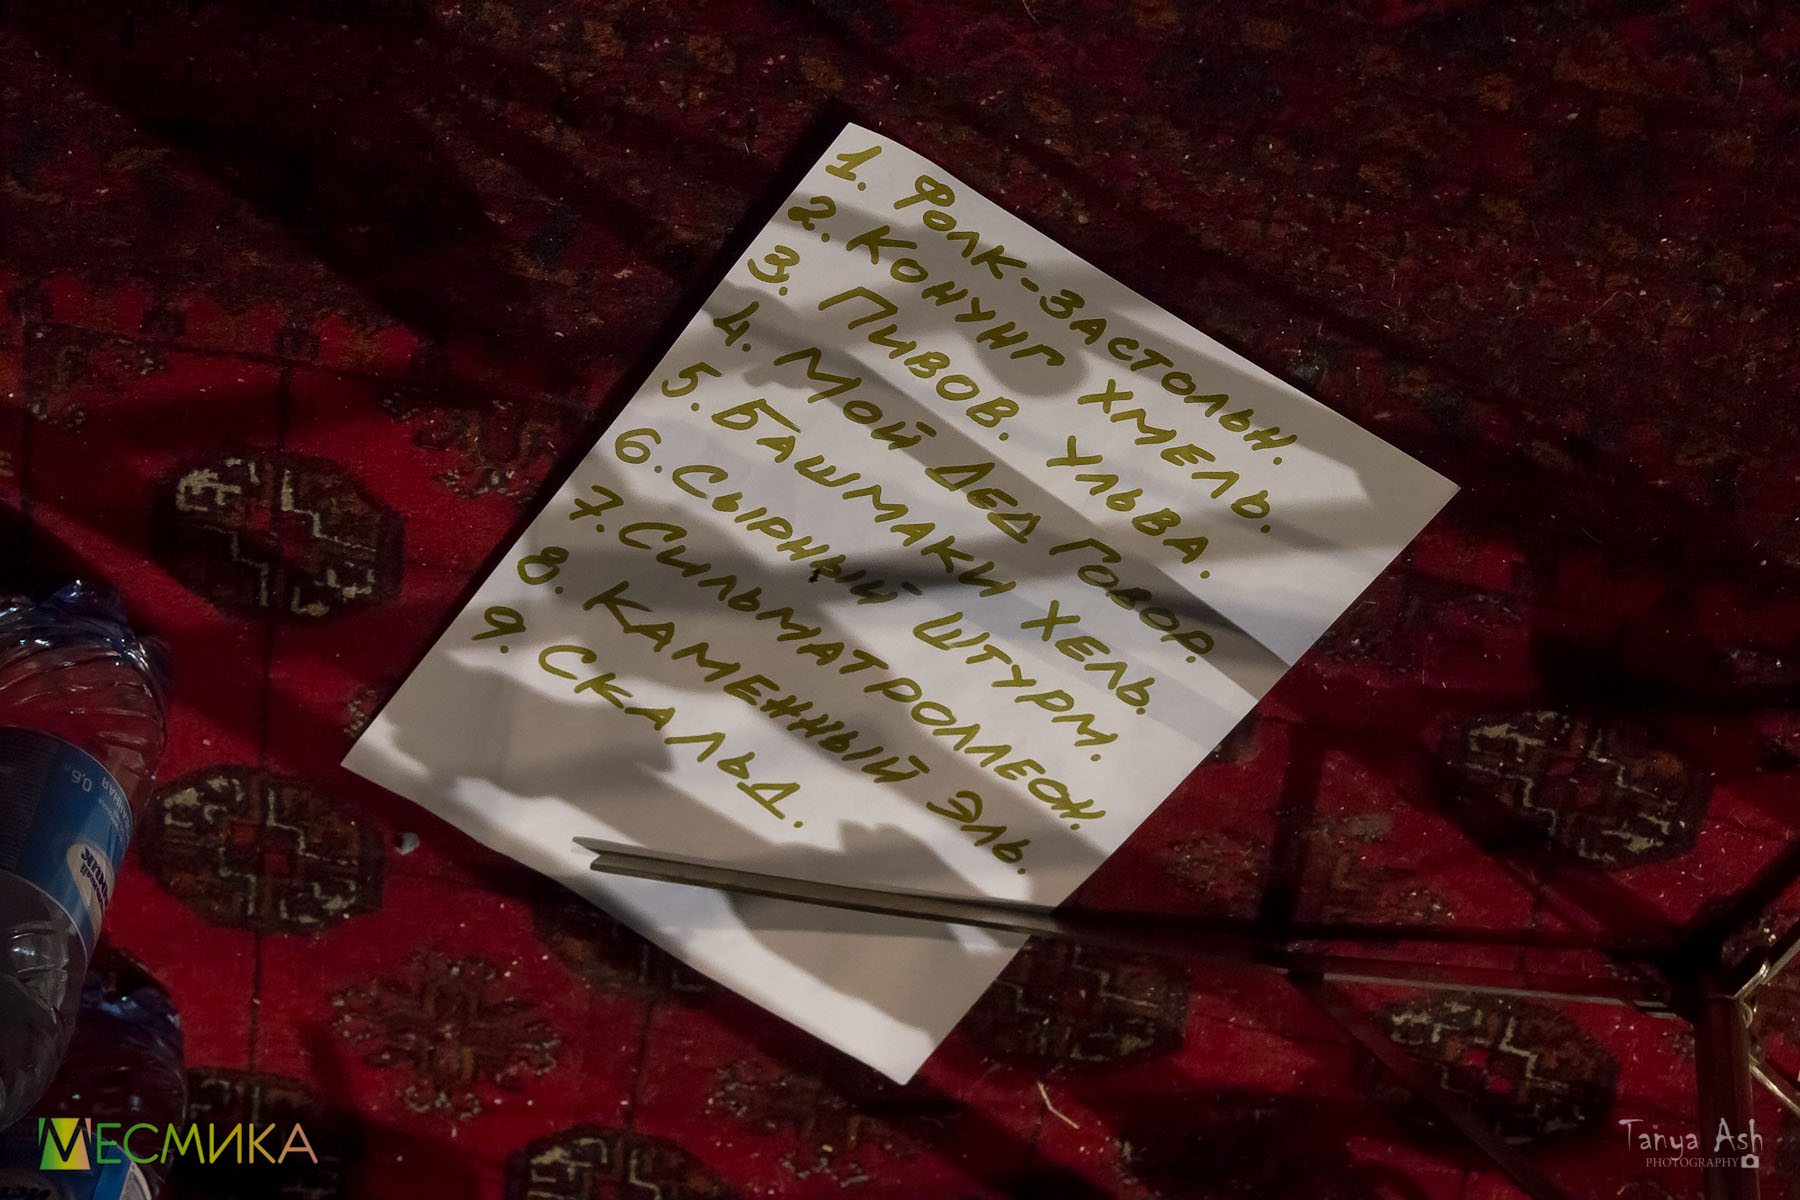 1. ФОЛК-ЗАСТОЛЬН.
2. КОНУНГ ХМЕЛЬ.
3. ПИВОВ. УЛЬВА.
4. МОЙ ДЕД ГОВОР.
5. БАШМАКИ ХЕЛЬ.
6. СЫРНЫЙ ШТУРМ.
7. СИЛЬМАТРОЛЛЕОН.
8. КАМЕННЫЙ ЭЛЬ.
9. СКАЛЬД.
0,5л
МЕСМИКА
Tanya Ash
PHOTOGRAPHY